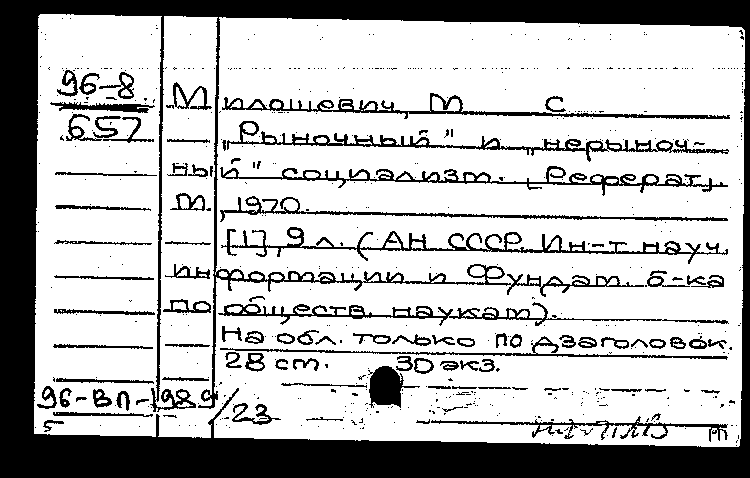 96-8
657
Милошевич, М С
„Рыночный" и „нерыноч-
ный" социализм. [Реферат].
М., 1970.
[1], 9 л. (АН СССР. Ин-т науч.
информации и Фундам. б-ка
по обществ. наукам).
На обл. только подзаголовок.
28 ст. 30 экз.
96-ВП-1989/23
5 РП